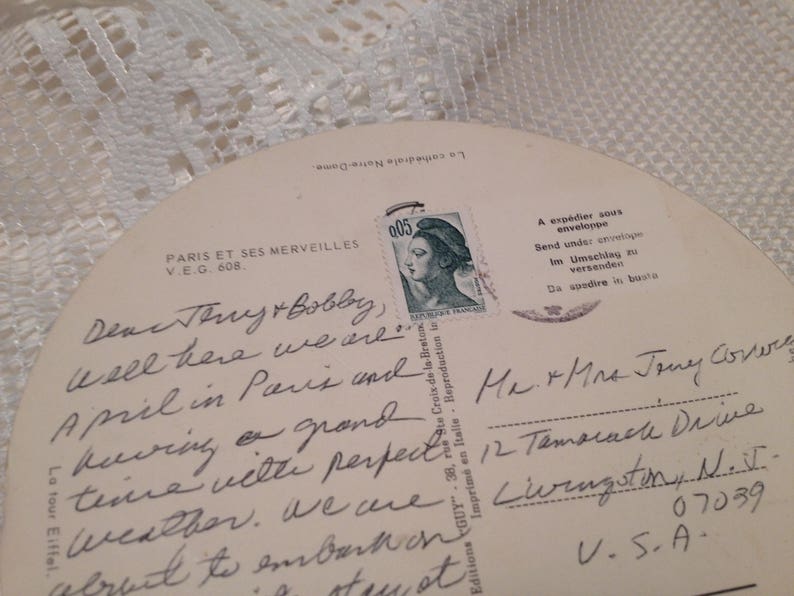 La cathédrale Notre-Dame.
PARIS ET SES MERVEILLES
V.E.G. 608.
0,05
REPUBLIQUE FRANÇAISE
A expédier sous
enveloppe
Send under envelope
Im Umschlag zu
versenden
Da spedire in busta
Dear Jerry & Bobby,
Well here we are
April in Paris and
having a grand
time with perfect
weather. We are
about to embark on
La tour Eiffel.
Editions "GUY" - 38, rue Ste Croix-de-la-Bretonn
Imprimé en Italie - Reproduction in
Mr. & Mrs Jerry
12 Tamarack Drive
Livingston, N.J.
07039
U.S.A.